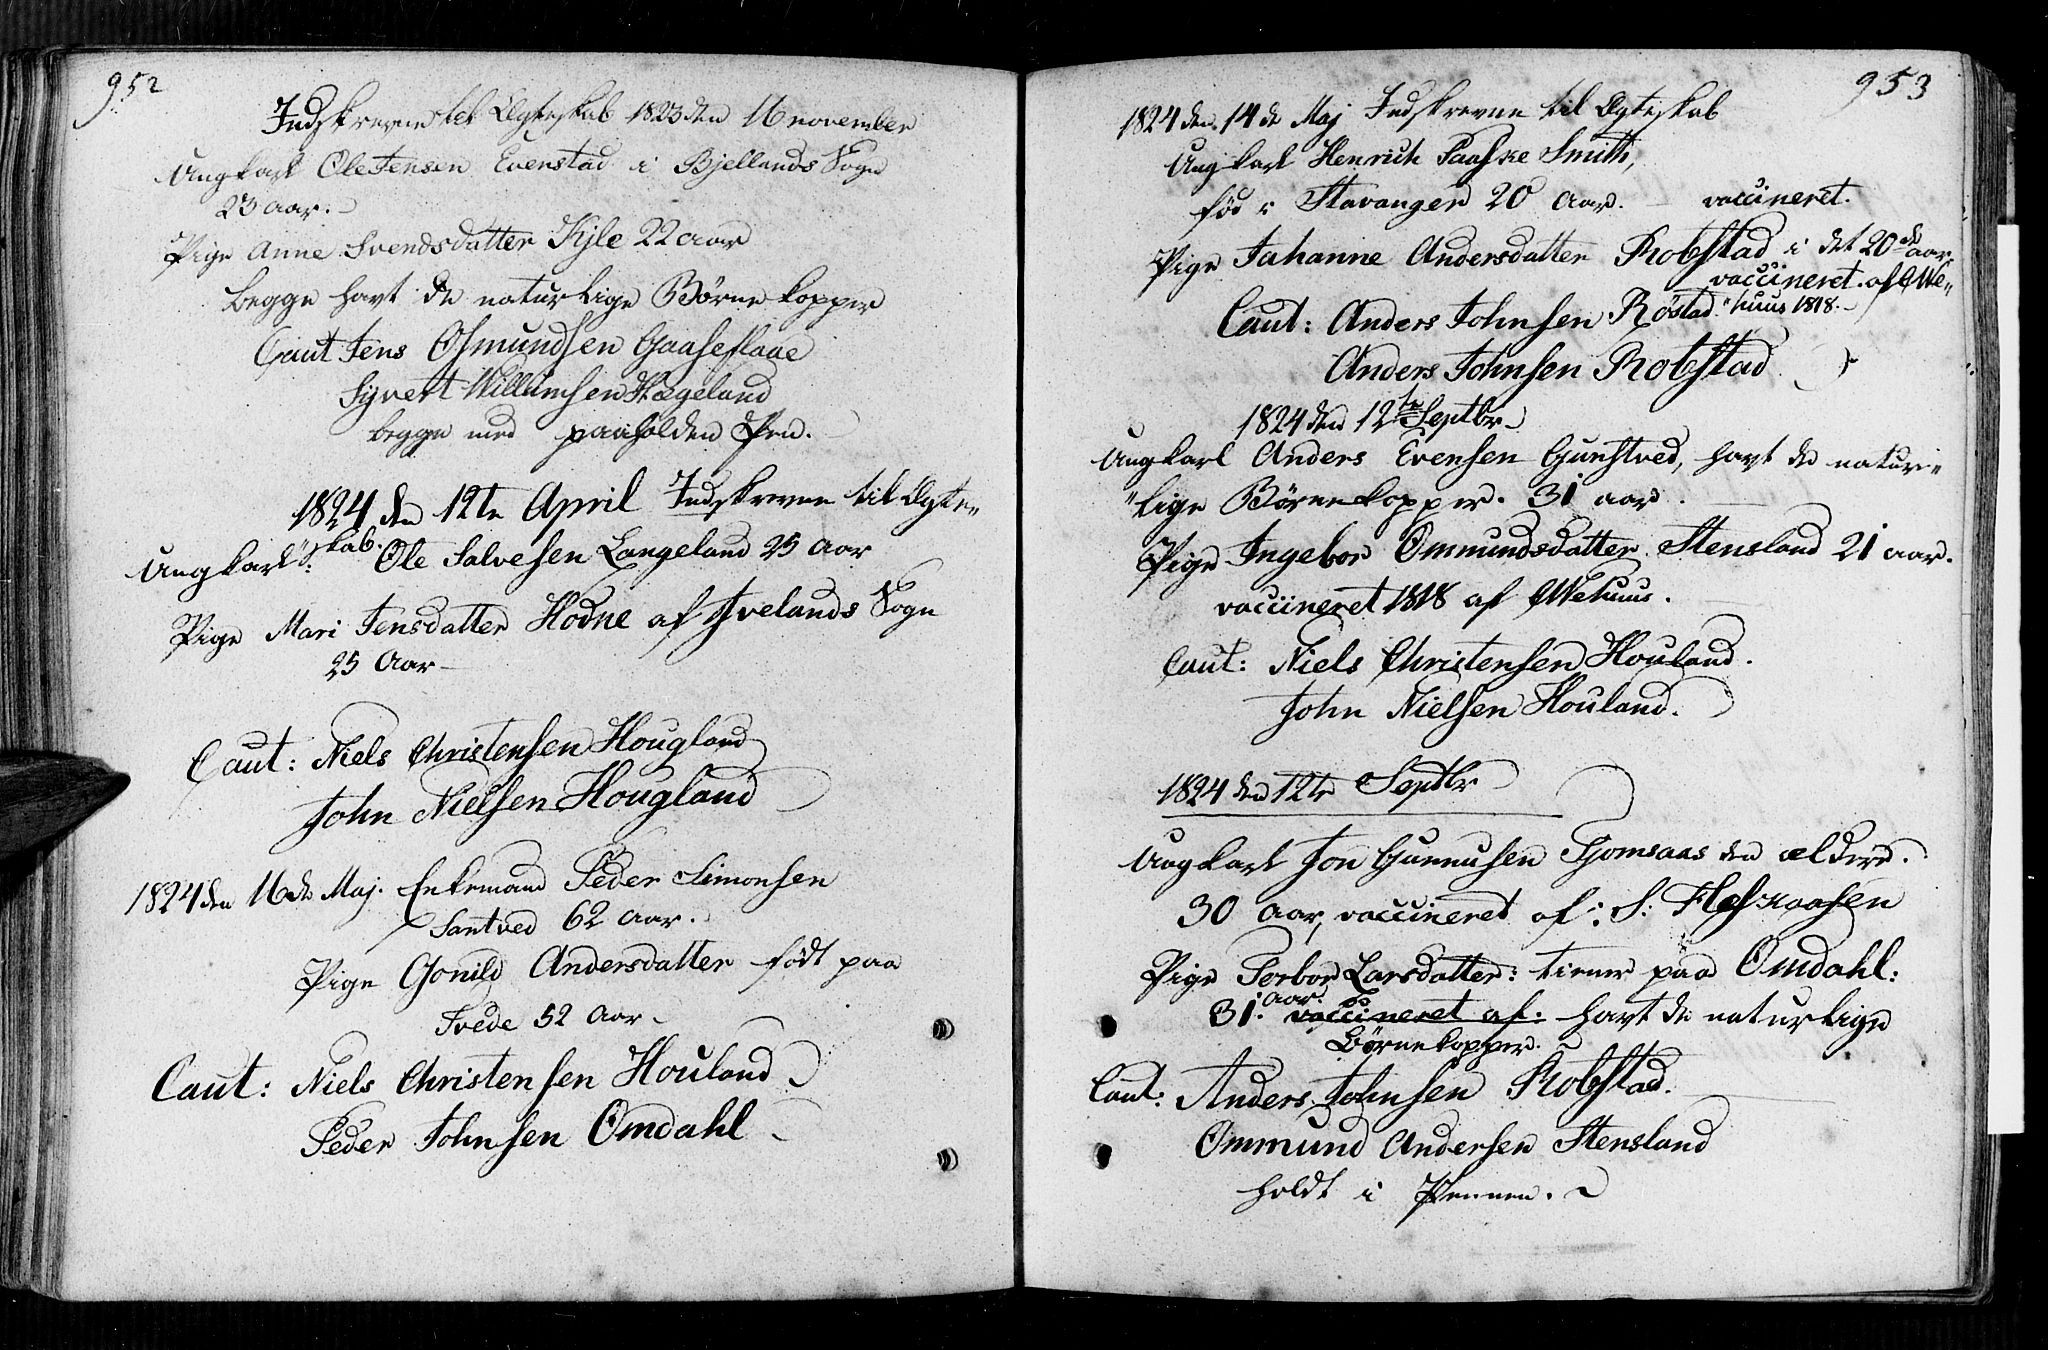 952
Indskrevne til Ægteskab 1823 den 16 november
Ungkarl Ole Jensen Evenstad i Bjellands Sogn
23 aar.
Pige Anne Svendsdatter Kjle 22 aar
begge havt de naturlige Børnekopper
Caut Jens Osmundsen Gaaseflaae
Syvert Willumsen Hægeland
begge med paaholden Pen.
1824 den 12te April Indskrevne til Ægte„
„skab.
Ungkarl: Ole Salvesen Langeland 25 Aar
Pige Mari Jensdatter Hodne af Ivelands Sogn
25 Aar
Caut: Niels Christensen Hougland
John Nielsen Hougland
1824 den 16de Maj. Enkemand Peder Simonsen
Santved 62 aar.
Pige Gonild Andersdatter født paa
Tvede 52 Aar
Caut: Niels Christensen Houland
Peder Johnsen Omdahl
953
1824 den 14de Maj Indskrevne til Ægteskab
Ungkarl Henrich Paaske Smith,
fød i Stavanger 20 aar. vaccineret.
Pige Johanne Andersdatter Robstad i det 20de aar
vaccineret af We„
„huus 1818.
Caut: Anders Johnsen Røstad
Anders Johnsen Robstad
1824 den 12te Septbr
Ungkarl Anders Evensen Gunstved, havt de natur„
„lige Børnekopper. 31 aar.
Pige Ingebor Ommundsdatter Stensland 21 aar.
vacciineret 1818 af Wehuus.
Caut: Niels Christensen Houland.
John Nielsen Houland.
1824 den 12te Septbr
Ungkarl Jon Gunnusen Tjomsaas den ældere.
30 aar, vaccineret af: S: Flaskaasen
Pige Torbor Larsdatter: tiener paa Omdahl:
31. aar. vaccineret af. havt de naturlige
Børnekopper.
Caut: Anders Johnsen Robstad.
Ommund Andersen Stensland
holdt i Pennen.